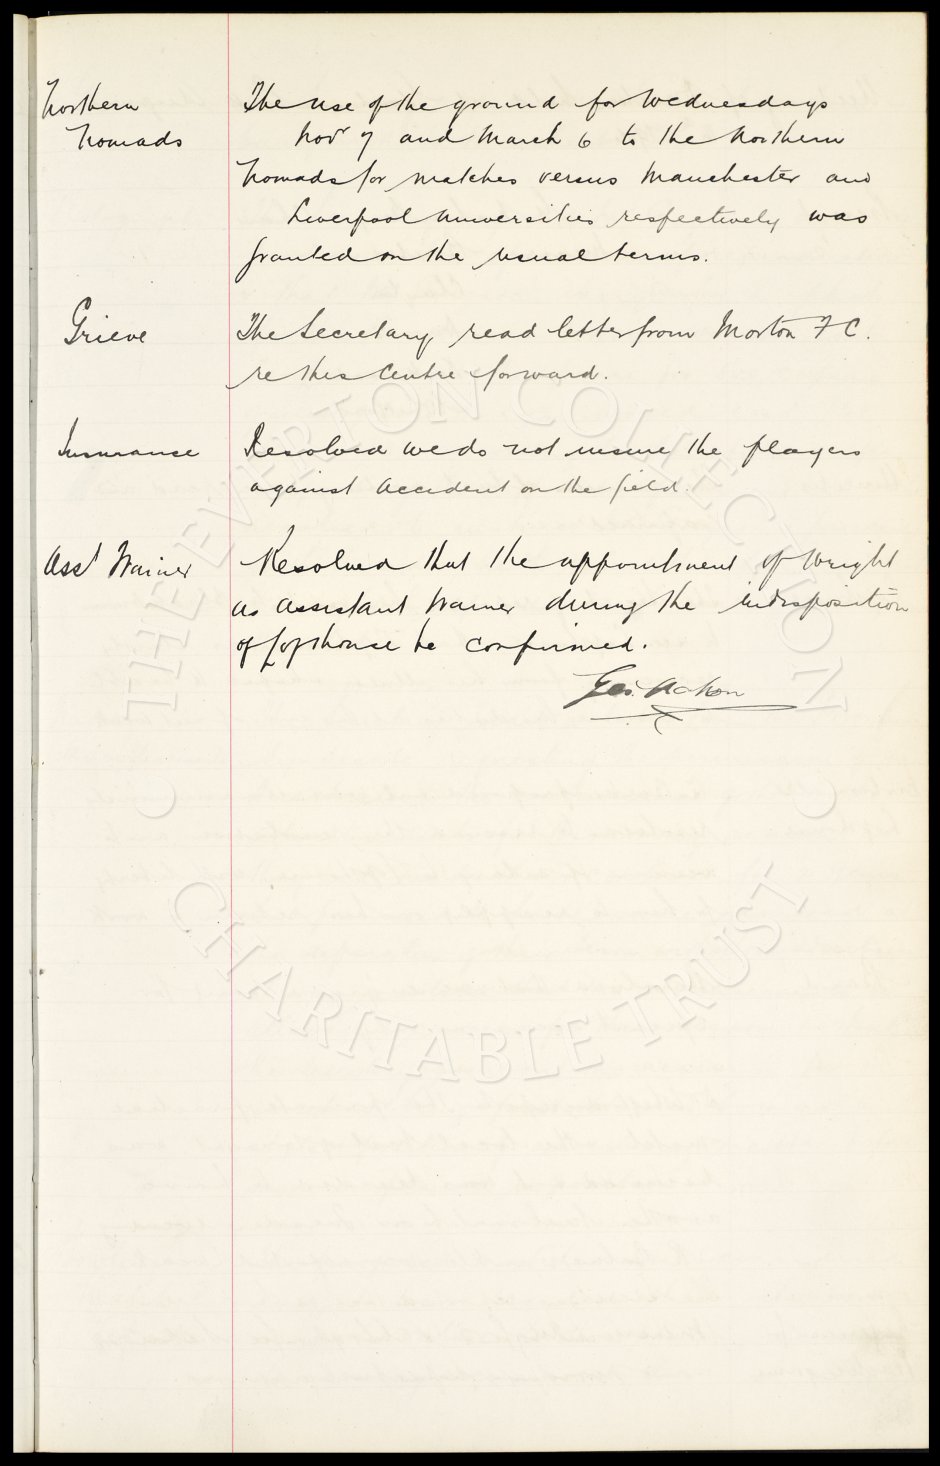 Northern
Nomads
The use of the ground for Wednesdays
Novr 7 and March 6 to the Northern
Nomads for matches versus Manchester and
Liverpool Universities respectively was
granted on the usual terms.
Grieve
The Secretary read letter from Morton F C.
re this Centre forward.
Insurance
Resolved we do not insure the players
against accident on the field.
Asst Trainer
Resolved that the appointment of Wright
as assistant trainer during the indisposition
of be confirmed.
THE EVERTON COLLECTION
CHARITABLE TRUST